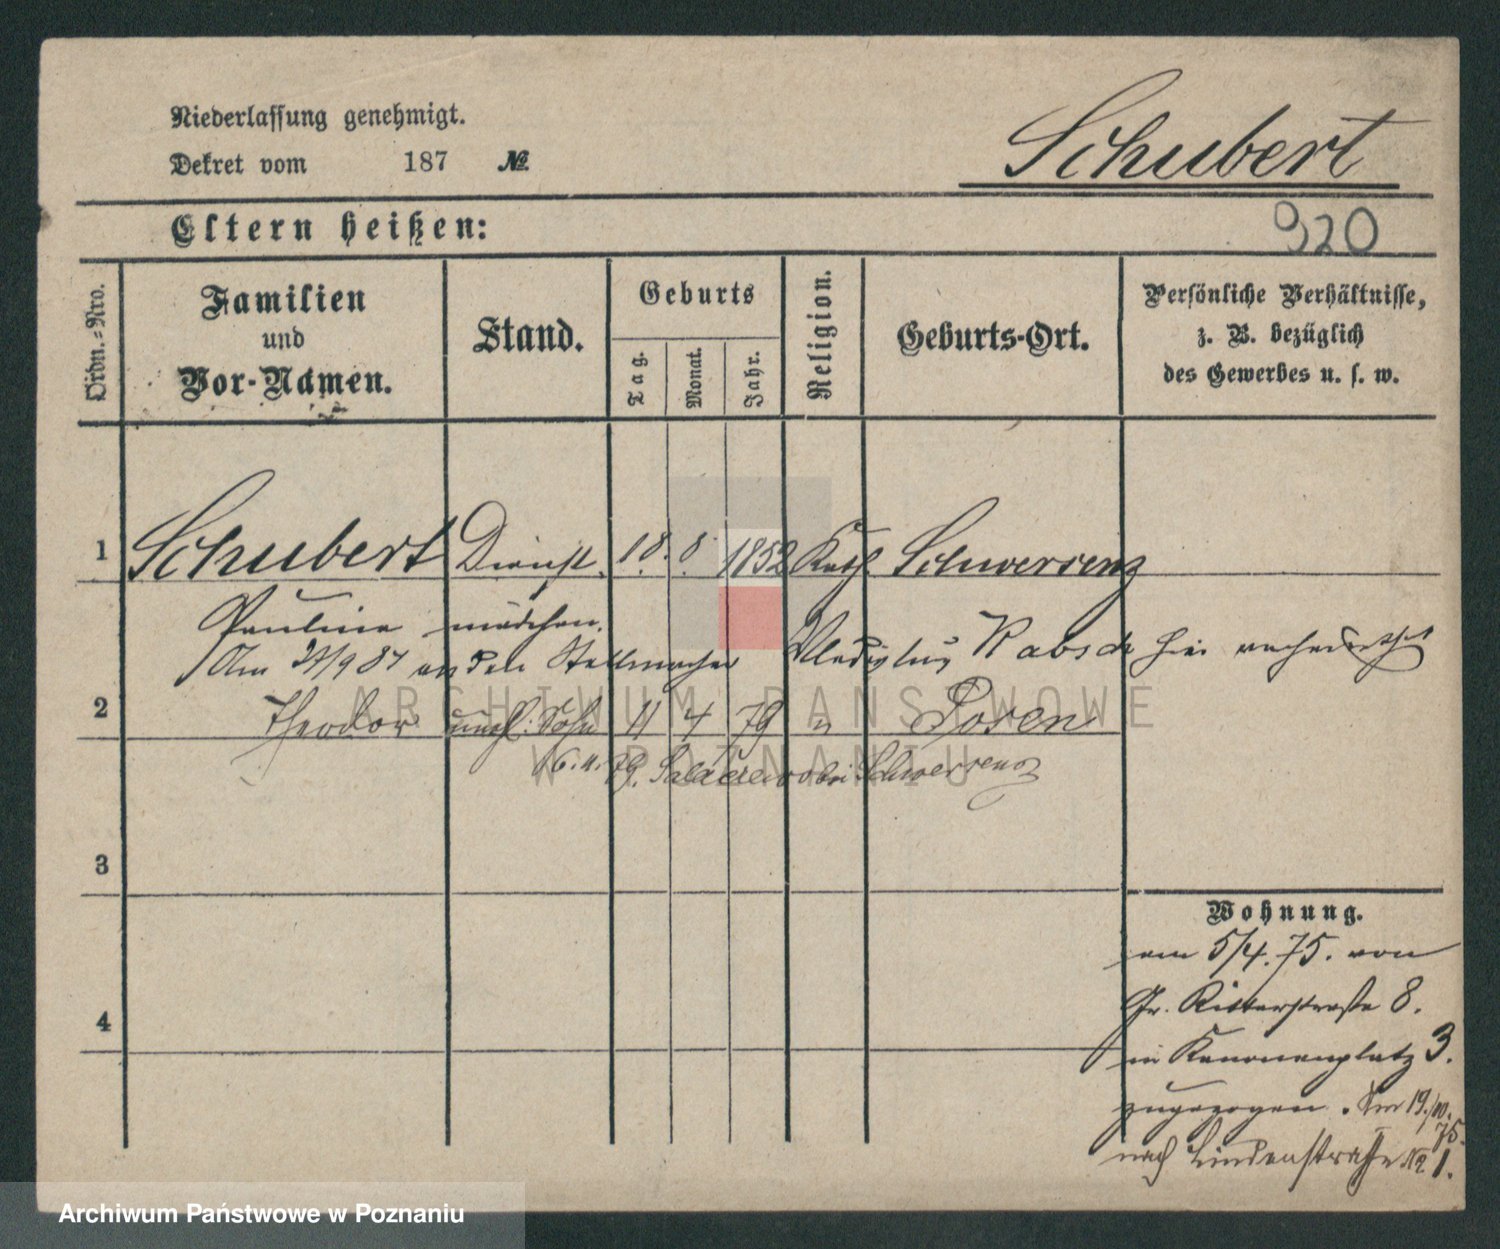 Niederlassung genehmigt.
Dekret vom 187 №
Schubert
Eltern heißen:
920
Ordn.-Nro.
Familien und Vor-Namen.
Stand.
Geburts
Tag.
Monat.
Jahr.
Religion.
Geburts-Ort.
Persönliche Verhältnisse,
z. B. bezüglich
des Gewerbes u. s. w.
1 Schubert Dienst 18. 8. 1852 Kath Schwersenz
Pauline mädchen.
Am 9 87 an den Stellmacher Wladislaus Rabsch hier verheirathet
2 Theodor unehl. Sohn 11 4 79 " Posen
6. 11. 79. bei Schwersenz
3
4
Wohnung.
am 5/4. 75. von
Gr. Ritterstraße 8.
in Kanonenplatz 3.
zugezogen. Am 19./10. 75.
nach Lindenstraße № 1.
ARCHIWUM PAŃSTWOWE
W POZNANIU
Archiwum Państwowe w Poznaniu